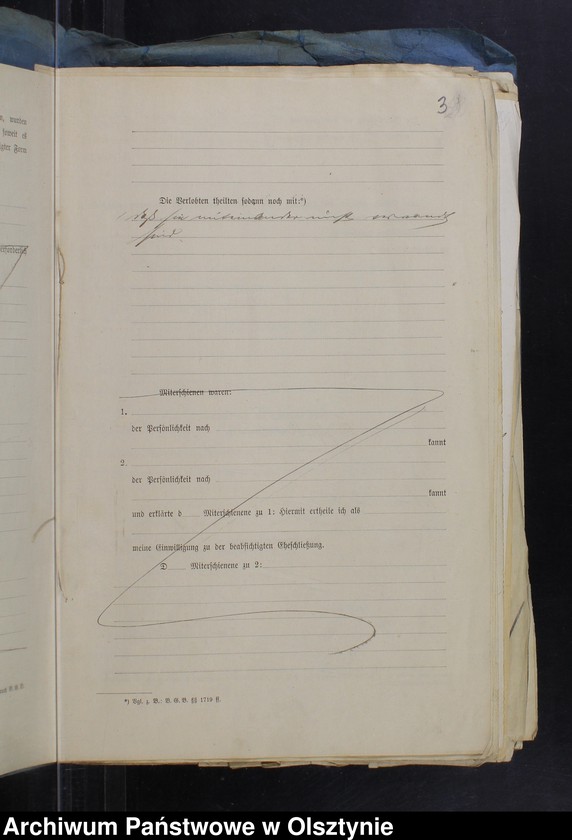 3
n, wurden
soweit es
igter Form
Die Verlobten theilten sodann noch mit:*)
daß sie miteinander nicht verwandt
sind.
Miterschienen waren:
1.
der Persönlichkeit nach
kannt
2.
der Persönlichkeit nach
kannt
und erklärte d Miterschienene zu 1: Hiermit ertheile ich als
meine Einwilligung zu der beabsichtigten Eheschließung.
D Miterschienene zu 2:
*) Vgl. z. B.: B. G. B. §§ 1718 ff.
Archiwum Państwowe w Olsztynie